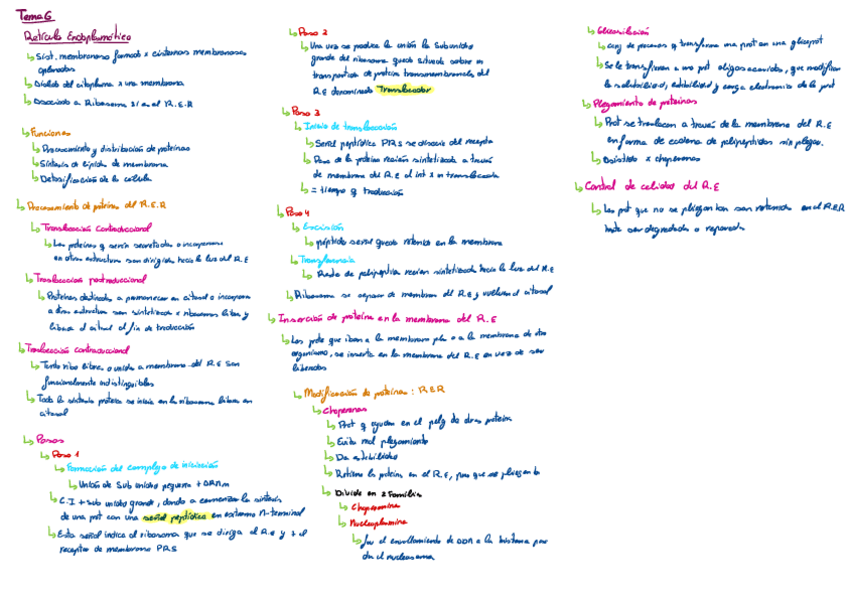 Tema 6
Retículo Endoplasmático
Sist. membranoso formado x cisternas membranosas
aplanadas
Aislado del citoplasma x una membrana
Asociado a Ribosoma si es el R.E.R
Funciones
Procesamiento y distribución de proteínas
Síntesis de lípidos de membrana
Detoxificación de la célula
Procesamiento de proteínas del R.E.R
Translocación Cotraduccional
Las proteínas q serán secretadas o incorporan
en otras estructura son dirigidas hacia la luz del R.E
Translocación postraduccional
Proteínas destinadas a permanecer en citosol o incorpora
a otras estructura son sintetizada x ribosomas libres y
libera al citosol al fin de traducción
Translocación cotraduccional
Tanto ribo libre o unido a membrana del R.E son
funcionalmente indistinguibles
Toda la síntesis proteica se inicia en los ribosomas libres en
citosol
Pasos
Paso 1
Formación del complejo de iniciación
Unión de Sub unidad pequeña + ARNm
C.I + sub unidad grande, dando a comenzar la síntesis
de una prot con una señal peptídica en extremo N-terminal
Esta señal indica al ribosoma que se dirija al R.E y + el
receptor de membrana PRS
Paso 2
Una vez se produce la unión la Subunidad
grande del ribosoma queda situada sobre un
transportador de proteína transmembranales del
R.E denominado Translocador
Paso 3
Inicio de translocación
Señal peptídica PRS se disocia del receptor
Paso de la proteína recién sintetizada a través
de membrana del R.E al int x un translocador
= tiempo q traducción
Paso 4
Escisión
péptido señal queda retenido en la membrana
Transferencia
Resto de polipéptido recién sintetizado hacia la luz del R.E
Ribosoma se separa de membrana del R.E y vuelven al citosol
Inserción de proteína en la membrana del R.E
Las prote que iban a la membrana plas o a la membrana de otro
organismo, se inserta en la membrana del R.E en vez de ser
liberadas
Modificación de proteínas: RER
Chaperonas
Prot q ayudan en el pleg de otras proteína
Evita mal plegamiento
Da estabilidad
Retiene la proteína en el R.E, para que se plieguen b
Divide en 2 Familia
Chaperonina
Nucleoplasmina
en el nucleosoma
Glicosilación
conj de procesos q transforma una prot en una glicoprot
Se le transfieren a una prot oligosacáridos, que modifican
la solubilidad, estabilidad y carga electrónica de la prot
Plegamiento de proteínas
Prot se traslocan a través de la membrana del R.E
en forma de cadena de polipéptidos sin plegar.
Asistido x chaperonas
Control de calidad del R.E
Las prot que no se pliegan bien son retenidas en el RER
hasta ser degradada o reparada